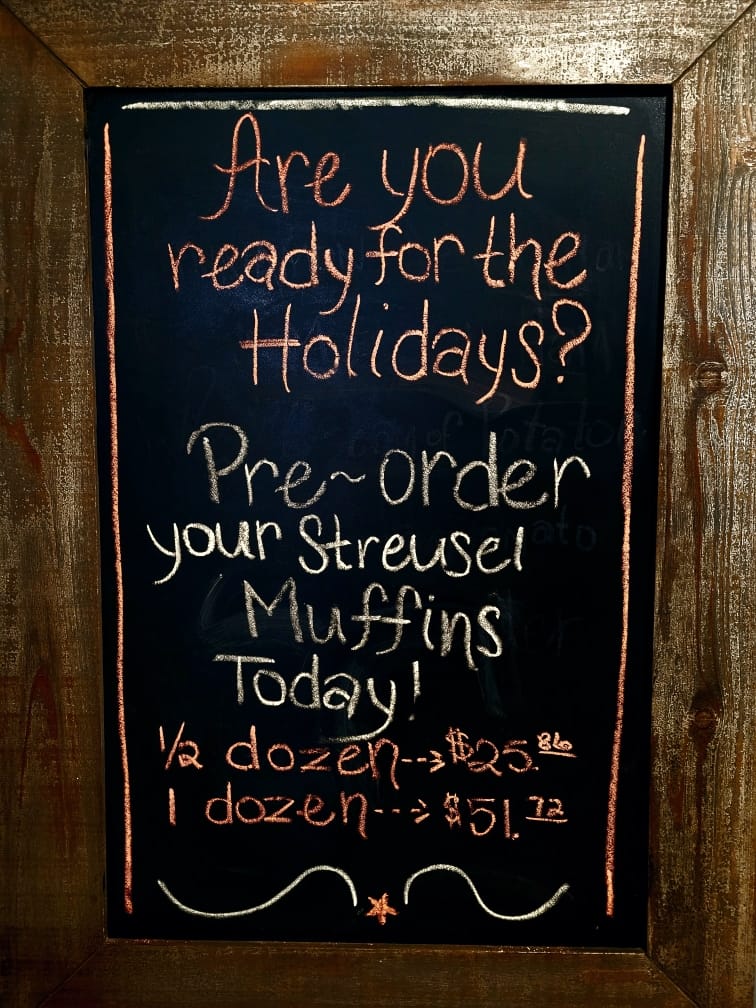 Are you
ready for the
Holidays?
Pre~order
your Streusel
Muffins
Today!
1/2 dozen--→$25.86
1 dozen---→$51.72